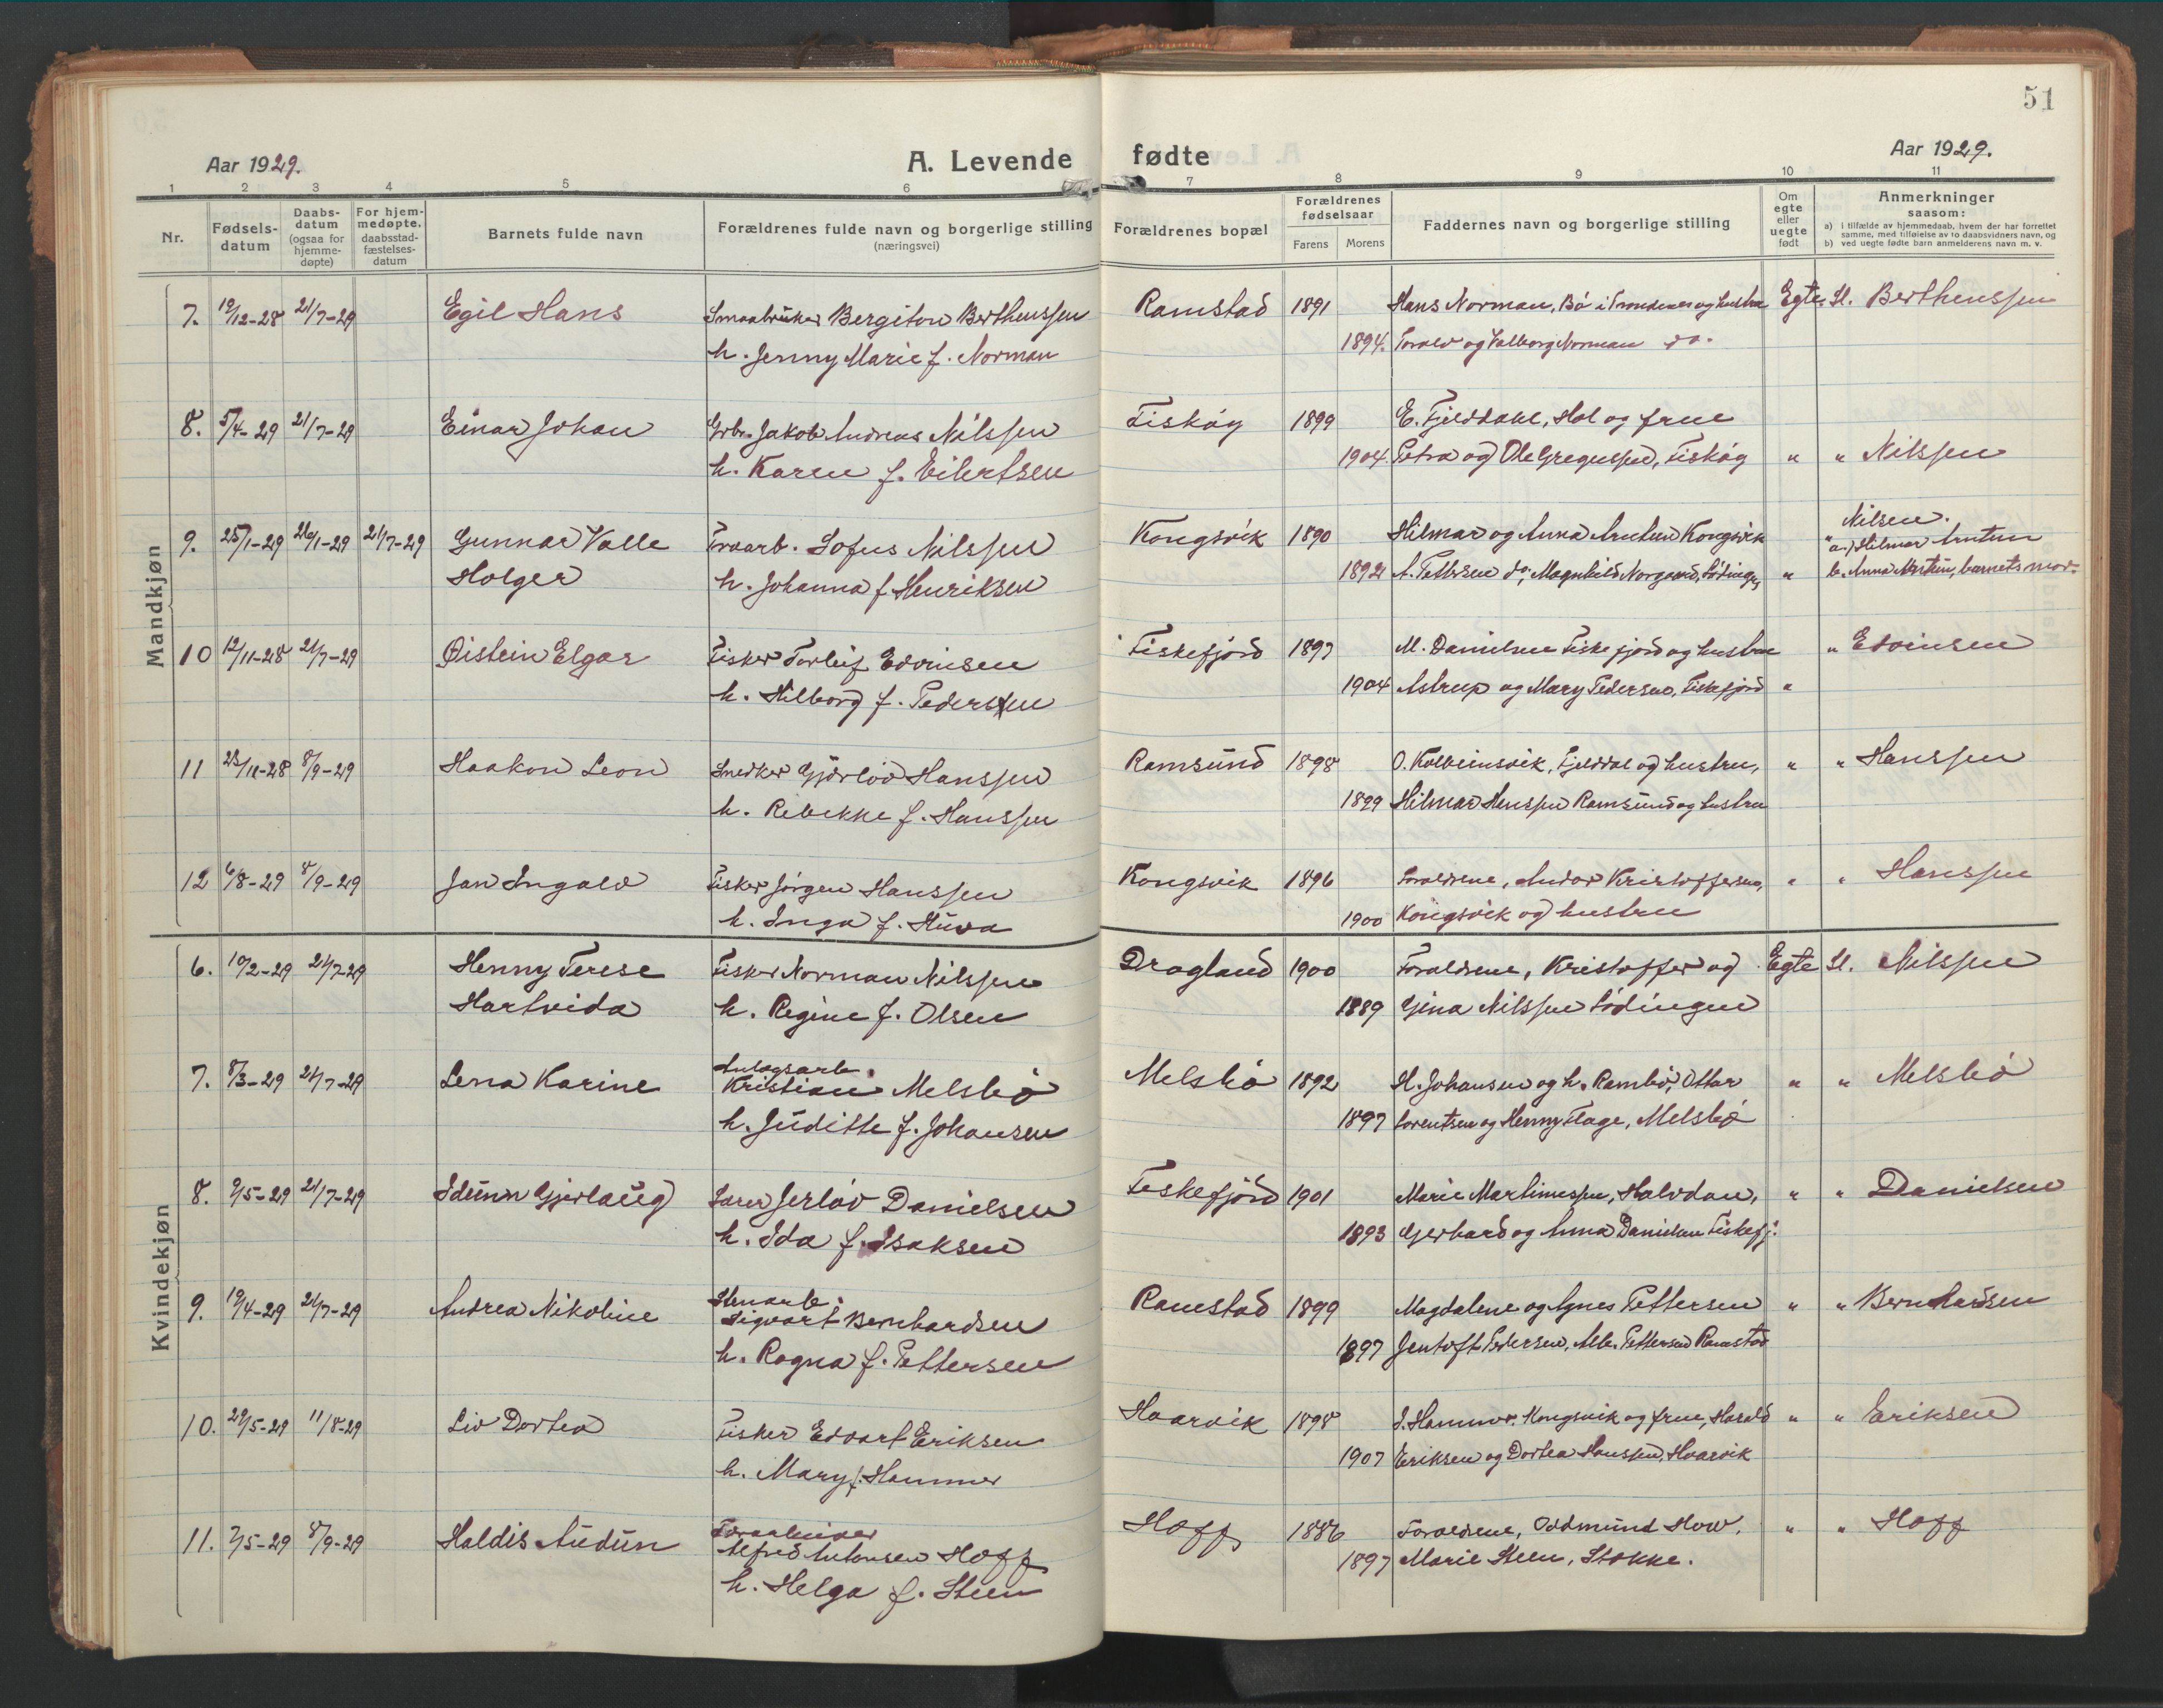 51
Aar 1929.
A. Levende fødte
Aar 1929.
1 2 3 4 5 6 7 8 9 10 11
Nr.
Fødsels-
datum
Daabs-
datum
(ogsaa for
hjemme-
døpte)
For hjem-
medøpte,
daabsstad-
fæstelses-
datum
Barnets fulde navn
Forældrenes fulde navn og borgerlige stilling
(næringsvei)
Forældrenes bopæl
Forældrenes
fødselsaar
Farens Morens
Faddernes navn og borgerlige stilling
Om
egte
eller
uegte
født
Anmerkninger
saasom:
a) I tilfælde av hjemmedaab, hvem der har forrettet
samme, med tilføielse av to daabsvidners navn, og
b) ved uegte fødte barn anmelderens navn m. v.
Mandkjøn
7. 19/12-28 21/7-29 Egil Hans Smaabruker Bergiton Berthenssen Ramstad 1891 Hans Norman, Bø i Trondenes og hustru Egte Sl. Berthenssen
h. Jenny Marie f. Norman 1894. Torald og Valborg Norman do.
8. 5/4-29 21/7-29 Einar Johan Grbr. Jakob Andreas Nilssen Fiskøy 1899 E. Fjelddahl, Hol og frue
h. Karen f. Eilertsen 1904. Petra og Ole Gregussen, Fiskøy " " Nilssen
9. 25/1-29 26/1-29 21/7-29 Gunnar Valle Kongsvik 1890 Hilmar og Anna Arntsen Kongsvik Nilsen.
Holger Sofus Nilssen " a.) Hilmar Arntsen
h. Johanna f. Henriksen 1892 A. Pettersen do; Magnhild Norgaard, Lødingen " b. Anna Arntsen, barnets mor.
10 12/11-28 21/7-29 Øistein Elgar Fisker Torleif Edvinsen Fiskefjord 1897 M. Danielsen Fiskefjord og hustru " Edvinsen
h. Hilborg f. Pedersen 1904 Astrup og Mary Pedersen, Fiskefjord "
11 23/11-28 8/9-29 Haakon Leon Snedker Gjørløv Hanssen Ramsund 1898 O. Kolbeinsvik, Fjelddal og hustru, " " Hanssen
h. Rebekke f. Hanssen 1899 Hilmar Hanssen Ramsund og hustru
12 6/8-29 8/9-29 Jan Ingald Fisker Jørgen Hanssen Kongsvik 1896 Foraldrene, Andor Kristoffersen, " " Hanssen
h. Inga f. Huva 1900 Kongsvik og hustru
Kvindekjøn
6. 10/2-29 21/7-29 Henny Terese Fisker Norman Nilssen Dragland 1900 Foraldrene, Kristoffer og Egte Sl. Nilssen
Hartvida h. Regine f. Olsen 1889 Gina Nilssen Lødingen
7. 8/3-29 21/7-29 Lena Karine Anlagsarb. Kristian Melsbø Melsbø 1892 H. Johansen og h. Rambø, Ottar " " Melsbø
h. Judithe f. Johansen 1897 Lorentsen og Henny Flage, Melsbø
8. 9/5-29 21/7-29 Idunn Gjerlaug Jerløv Danielsen Fiskefjord 1901 Marie Martinussen, Halvdan, " " Danielsen
h. Ida f. Isaksen 1893 Gerhard og Anna Danielsen Fiskefj.
9. 19/4-29 21/7-29 Andrea Nikoline Stenarb. Sigvart Bernhardsen Ramstad 1899 Magdalene og Agnes Pettersen " " Bernhardsen
h. Ragna f. Pettersen 1897 Jentoft Pedersen, Alb. Pettersen Ramstad
10. 29/5-29 11/8-29 Liv Dortea Fisker Edvart Eriksen Haarvik 1898 J. Hammer, Kongsvik og frue, Harald " " Eriksen
h. Mary f. Hammer 1907 Eriksen og Dortea Hanssen, Haarvik
11. 7/5-29 8/9-29 Haldis Audun Alfred Antonsen Hoff Hoff 1886 Foraldrene, Oddmund How, " " Hoff
h. Helga f. Steen 1897 Marie Steen, Stokke.